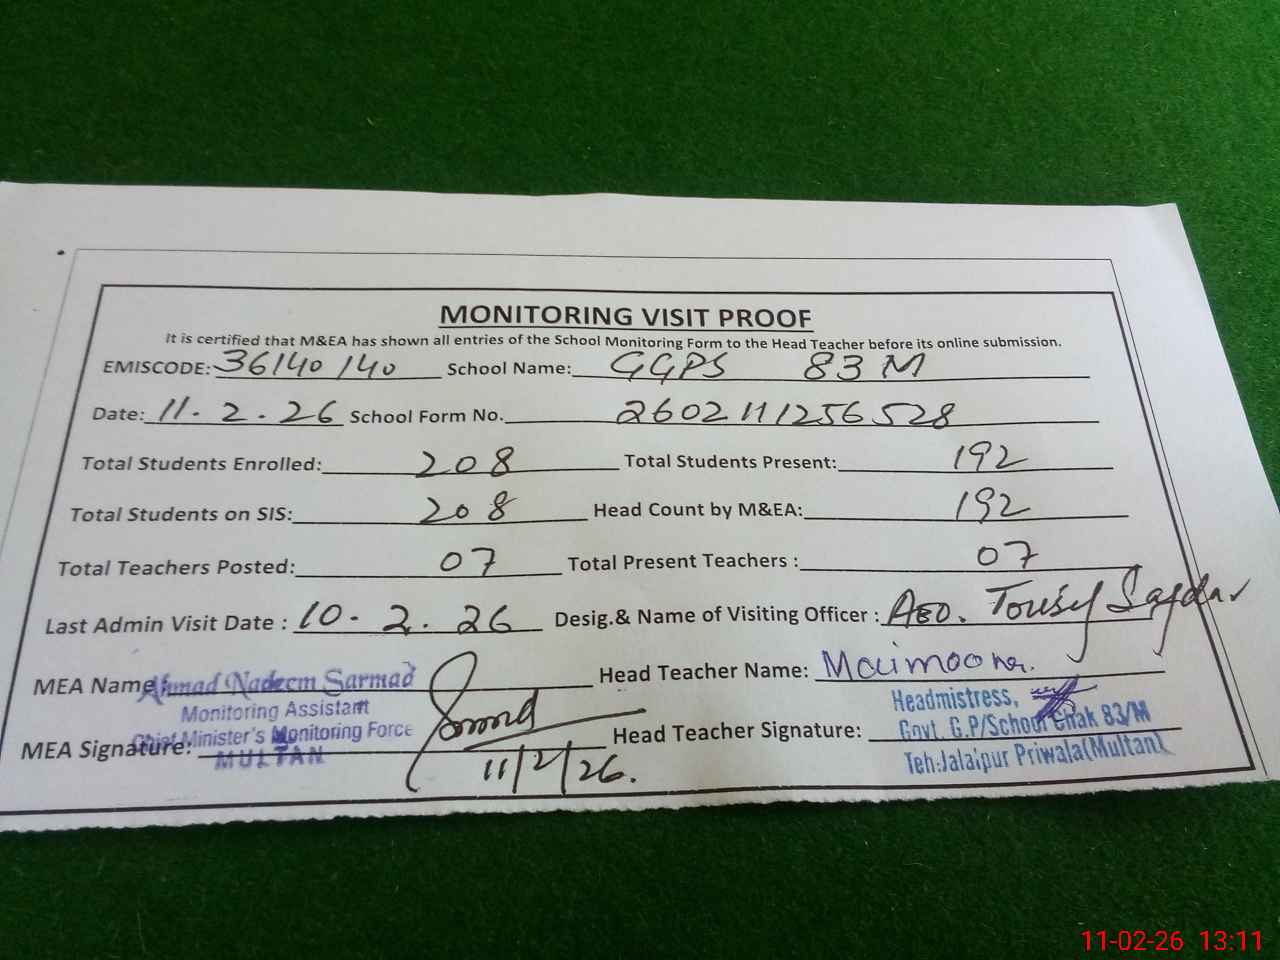 MONITORING VISIT PROOF
It is certified that M&EA has shown all entries of the School Monitoring Form to the Head Teacher before its online submission.
EMISCODE: 36140140 School Name: GGPS 83 M
Date: 11.2.26 School Form No. 2602111256528
Total Students Enrolled: 208 Total Students Present: 192
Total Students on SIS: 208 Head Count by M&EA: 192
Total Teachers Posted: 07 Total Present Teachers : 07
Last Admin Visit Date : 10.2.26 Desig.& Name of Visiting Officer : AEO.
MEA Name Ahmad Nadeem Sarmad Head Teacher Name: Maimoona.
Monitoring Assistant Headmistress,
Chief Minister's Monitoring Force Govt. G.P/School Chak 83/M
MEA Signature: Head Teacher Signature:
MULTAN Teh:Jalalpur Pirwala(Multan)
11/2/26.
11-02-26 13:11